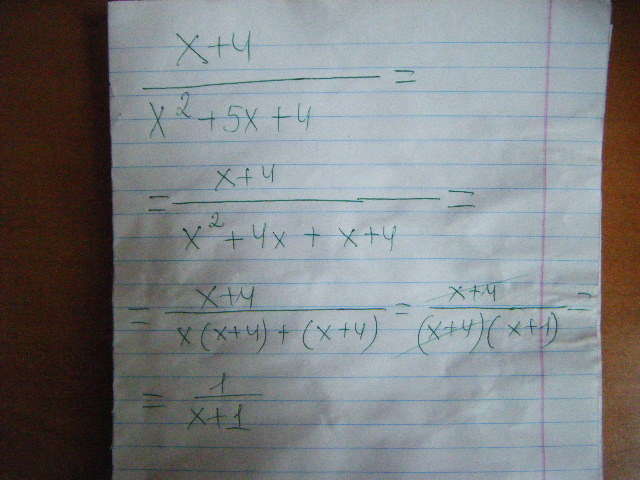 x+4
/
x²+5x+4 =
= x+4
/
x²+4x + x+4 =
= x+4 / x(x+4)+(x+4) = x+4 / (x+4)(x+1) =
= 1 / x+1